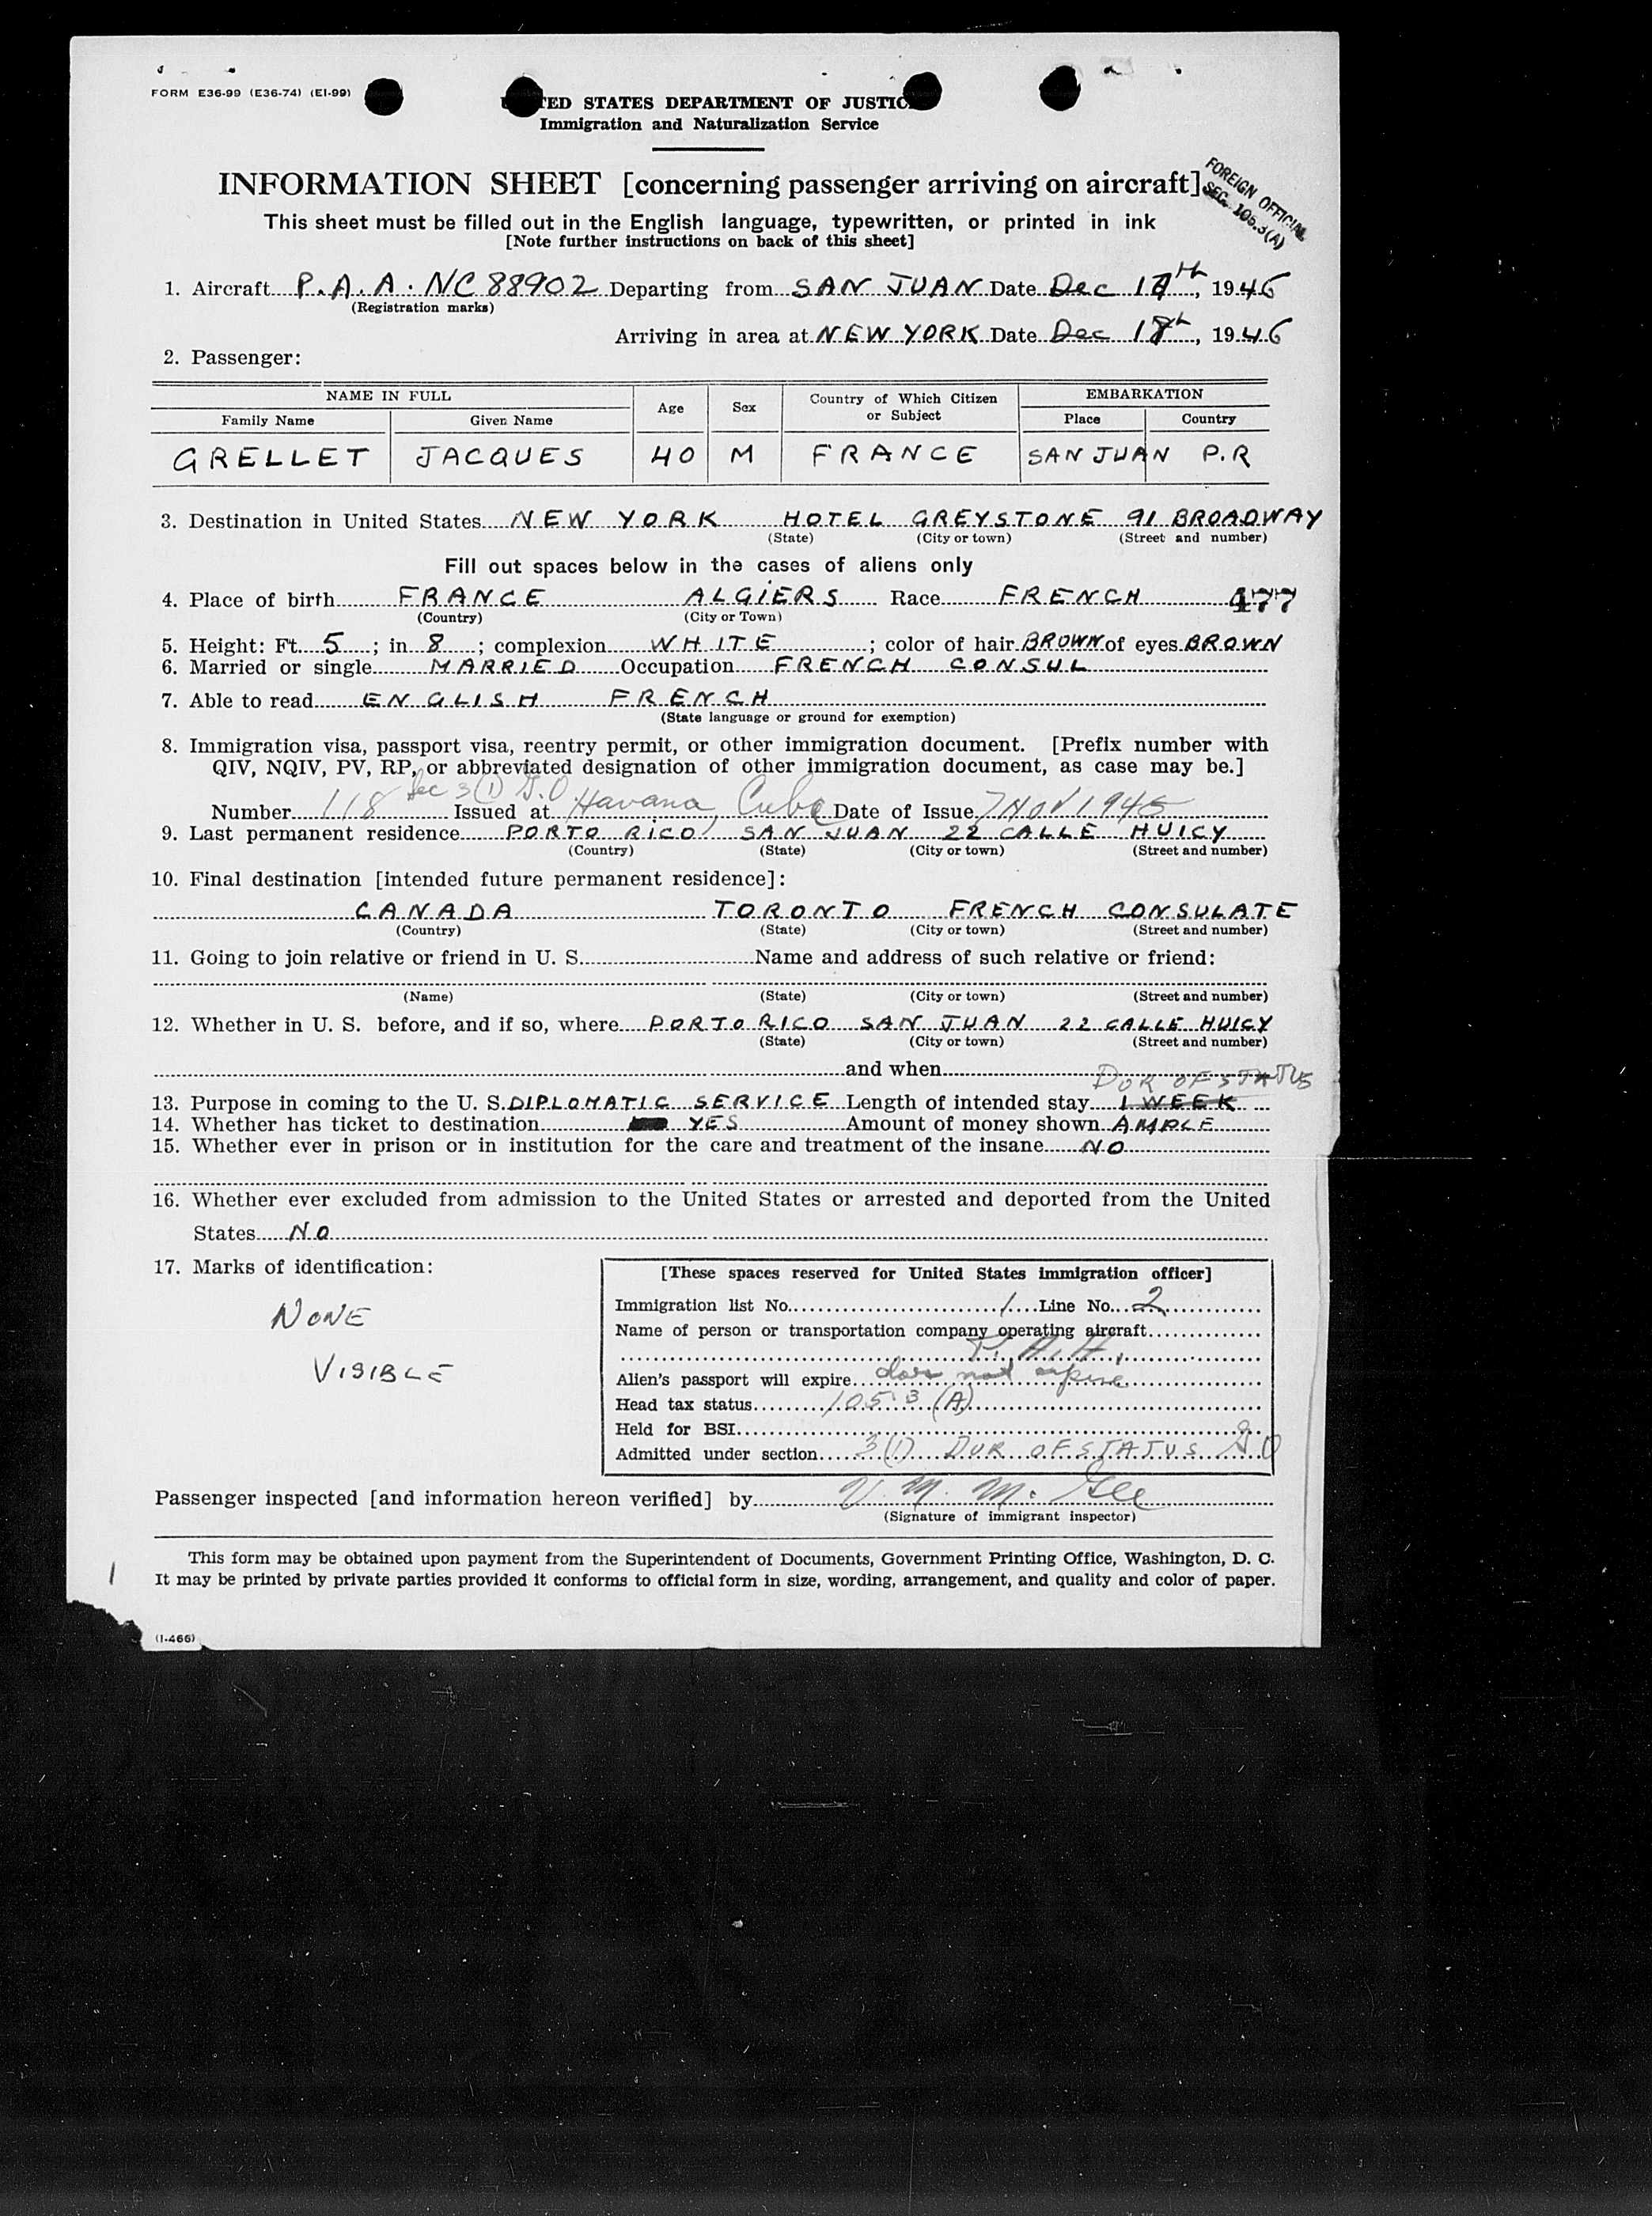 FORM E36-99 (E36-74) (EI-99)
TED STATES DEPARTMENT OF JUSTIC
Immigration and Naturalization Service
INFORMATION SHEET [concerning passenger arriving on aircraft]
FOREIGN OFFICIAL
SEC. 106.3(A)
This sheet must be filled out in the English language, typewritten, or printed in ink
[Note further instructions on back of this sheet]
1. Aircraft P.A.A. NC 88902 Departing from SAN JUAN Date Dec th, 1946
(Registration marks)
Arriving in area at NEW YORK Date Dec , 1946
2. Passenger:
NAME IN FULL Age Sex Country of Which Citizen or Subject EMBARKATION
Family Name Given Name Place Country
GRELLET JACQUES 40 M FRANCE SAN JUAN P.R
3. Destination in United States NEW YORK HOTEL GREYSTONE 91 BROADWAY
(State) (City or town) (Street and number)
Fill out spaces below in the cases of aliens only
4. Place of birth FRANCE ALGIERS Race FRENCH 477
(Country) (City or Town)
5. Height: Ft. 5 ; in 8 ; complexion WHITE ; color of hair BROWN of eyes BROWN
6. Married or single MARRIED Occupation FRENCH CONSUL
7. Able to read ENGLISH FRENCH
(State language or ground for exemption)
8. Immigration visa, passport visa, reentry permit, or other immigration document. [Prefix number with
QIV, NQIV, PV, RP, or abbreviated designation of other immigration document, as case may be.]
Sec 3(1) G.O
Number 118 Issued at Havana, Cuba Date of Issue 7 NOV 1945
9. Last permanent residence PORTO RICO SAN JUAN 22 CALLE HUICY
(Country) (State) (City or town) (Street and number)
10. Final destination [intended future permanent residence]:
CANADA TORONTO FRENCH CONSULATE
(Country) (State) (City or town) (Street and number)
11. Going to join relative or friend in U. S. Name and address of such relative or friend:
(Name) (State) (City or town) (Street and number)
12. Whether in U. S. before, and if so, where PORTO RICO SAN JUAN 22 CALLE HUICY
(State) (City or town) (Street and number)
and when
DUR OF STATUS
13. Purpose in coming to the U. S. DIPLOMATIC SERVICE Length of intended stay 1 WEEK
14. Whether has ticket to destination YES Amount of money shown AMPLE
15. Whether ever in prison or in institution for the care and treatment of the insane NO
16. Whether ever excluded from admission to the United States or arrested and deported from the United
States NO
17. Marks of identification:
NONE
VISIBLE
[These spaces reserved for United States immigration officer]
Immigration list No. 1 Line No. 2
Name of person or transportation company operating aircraft
P.A.A.
Alien's passport will expire does not expire
Head tax status 105.3 (A)
Held for BSI
Admitted under section 3(1) DUR OF STATUS G O
Passenger inspected [and information hereon verified] by V. M. McGee
(Signature of immigrant inspector)
This form may be obtained upon payment from the Superintendent of Documents, Government Printing Office, Washington, D. C.
It may be printed by private parties provided it conforms to official form in size, wording, arrangement, and quality and color of paper.
1
(I-466)